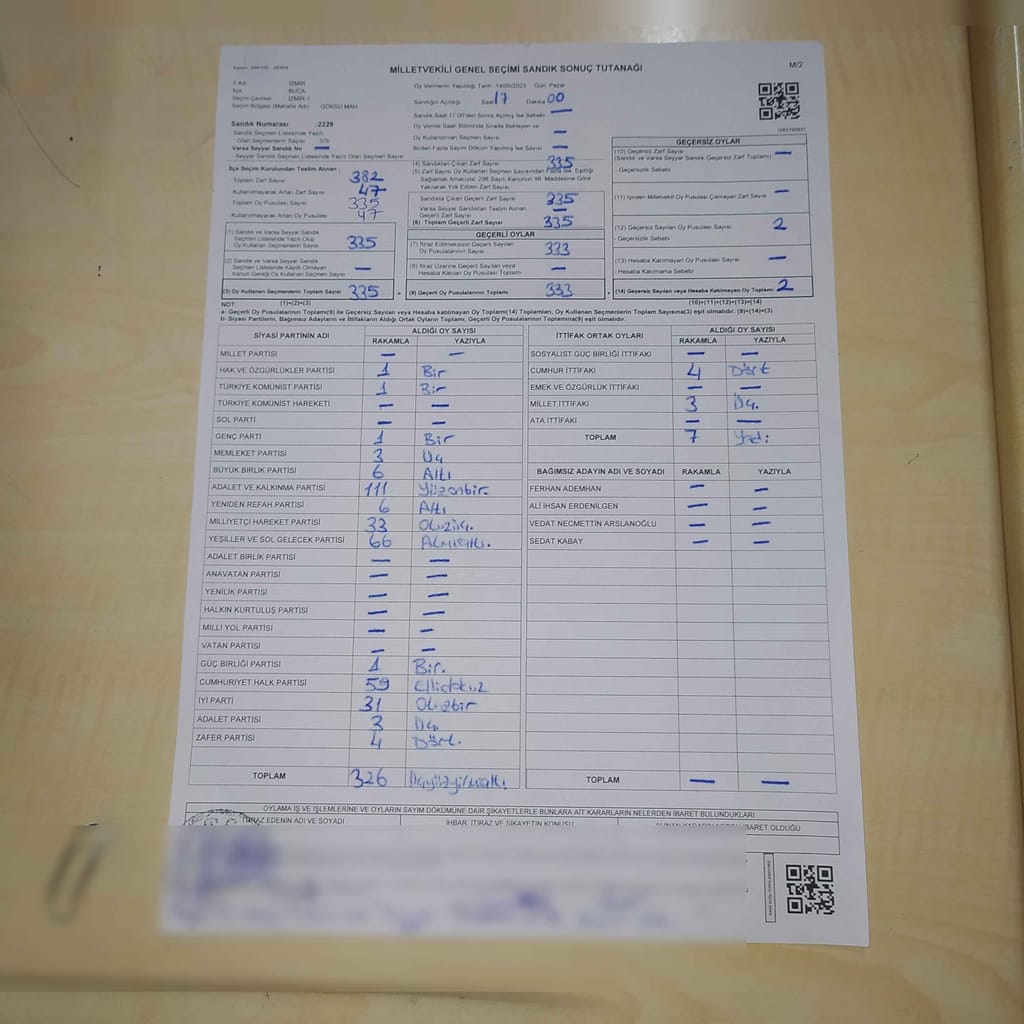 MİLLETVEKİLİ GENEL SEÇİMİ SANDIK SONUÇ TUTANAĞI
M/2
İl Adı : İZMİR
İlçe : BUCA
Seçim Çevresi : İZMİR-I
Seçim Bölgesi (Mahalle Adı) : GÖKSU MAH
Sandık Numarası :2229
Sandık Seçmen Listesinde Yazılı
Olan Seçmenlerin Sayısı : 376
Varsa Seyyar Sandık No —
- Seyyar Sandık Seçmen Listesinde Yazılı Olan Seçmen Sayısı
İlçe Seçim Kurulundan Teslim Alınan :
- Toplam Zarf Sayısı 382
- Kullanılmayarak Artan Zarf Sayısı 47
- Toplam Oy Pusulası Sayısı 335
- Kullanılmayarak Artan Oy Pusulası 47
(1) Sandık ve Varsa Seyyar Sandık
Seçmen Listesinde Yazılı Olup
Oy Kullanan Seçmenlerin Sayısı 335
(2) Sandık ve Varsa Seyyar Sandık
Seçmen Listesinde Kayıtlı Olmayan
Kanun Gereği Oy Kullanan Seçmen Sayısı —
(3) Oy Kullanan Seçmenlerin Toplam Sayısı 335
(1)+(2)=(3)
Oy Vermenin Yapıldığı Tarih 14/05/2023 Gün Pazar
Sandığın Açıldığı Saat 17 Dakika 00
Sandık Saat 17.00'den Sonra Açılmış İse Sebebi —
Oy Verme Saati Bitiminde Sırada Bekleyen ve
Oy Kullandırılan Seçmen Sayısı —
Birden Fazla Sayım Döküm Yapılmış İse Sayısı —
(4) Sandıktan Çıkan Zarf Sayısı 335
(5) Zarf Sayısı Oy Kullanan Seçmen Sayısından Fazla İse, Eşitliği
Sağlamak Amacıyla, 298 Sayılı Kanunun 98. Maddesine Göre
Yakılarak Yok Edilen Zarf Sayısı
Sandıkta Çıkan Geçerli Zarf Sayısı 335
Varsa Seyyar Sandıktan Teslim Alınan
Geçerli Zarf Sayısı —
(6) Toplam Geçerli Zarf Sayısı 335
GEÇERLİ OYLAR
(7) İtiraz Edilmeksizin Geçerli Sayılan
Oy Pusulalarının Sayısı 333
(8) İtiraz Üzerine Geçerli Sayılan veya
Hesaba Katılan Oy Pusulası Toplamı —
(9) Geçerli Oy Pusulalarının Toplamı 333
GEÇERSİZ OYLAR
(10) Geçersiz Zarf Sayısı —
(Sandık ve Varsa Seyyar Sandık Geçersiz Zarf Toplamı)
- Geçersizlik Sebebi
(11) İçinden Milletvekili Oy Pusulası Çıkmayan Zarf Sayısı —
(12) Geçersiz Sayılan Oy Pusulası Sayısı 2
- Geçersizlik Sebebi
(13) Hesaba Katılmayan Oy Pusulası Sayısı —
- Hesaba Katılmama Sebebi
(14) Geçersiz Sayılan veya Hesaba Katılmayan Oy Toplamı 2
(10)+(11)+(12)+(13)=(14)
NOT:
a- Geçerli Oy Pusulalarının Toplamı(9) ile Geçersiz Sayılan veya Hesaba Katılmayan Oy Toplamı(14) Toplamları, Oy Kullanan Seçmenlerin Toplam Sayısına(3) eşit olmalıdır. (9)+(14)=(3)
b- Siyasi Partilerin, Bağımsız Adayların ve İttifakların Aldığı Ortak Oyların Toplamı, Geçerli Oy Pusulalarının Toplamına(9) eşit olmalıdır.
SİYASİ PARTİNİN ADI ALDIĞI OY SAYISI
RAKAMLA YAZIYLA
MİLLET PARTİSİ — —
HAK VE ÖZGÜRLÜKLER PARTİSİ 1 Bir
TÜRKİYE KOMÜNİST PARTİSİ 1 Bir
TÜRKİYE KOMÜNİST HAREKETİ — —
SOL PARTİ — —
GENÇ PARTİ 1 Bir
MEMLEKET PARTİSİ 3 Üç
BÜYÜK BİRLİK PARTİSİ 6 Altı
ADALET VE KALKINMA PARTİSİ 111 Yüzonbir.
YENİDEN REFAH PARTİSİ 6 Altı
MİLLİYETÇİ HAREKET PARTİSİ 33 Otuzüç.
YEŞİLLER VE SOL GELECEK PARTİSİ 66 Altmışaltı.
ADALET BİRLİK PARTİSİ — —
ANAVATAN PARTİSİ — —
YENİLİK PARTİSİ — —
HALKIN KURTULUŞ PARTİSİ — —
MİLLİ YOL PARTİSİ — —
VATAN PARTİSİ — —
GÜÇ BİRLİĞİ PARTİSİ 1 Bir.
CUMHURİYET HALK PARTİSİ 59 Ellidokuz
İYİ PARTİ 31 Otuzbir
ADALET PARTİSİ 3 Üç
ZAFER PARTİSİ 4 Dört.
TOPLAM 326 Üçyüzyirmialtı.
İTTİFAK ORTAK OYLARI ALDIĞI OY SAYISI
RAKAMLA YAZIYLA
SOSYALİST GÜÇ BİRLİĞİ İTTİFAKI — —
CUMHUR İTTİFAKI 4 Dört
EMEK VE ÖZGÜRLÜK İTTİFAKI — —
MİLLET İTTİFAKI 3 Üç.
ATA İTTİFAKI — —
TOPLAM 7 Yedi
BAĞIMSIZ ADAYIN ADI VE SOYADI RAKAMLA YAZIYLA
FERHAN ADEMHAN — —
ALİ İHSAN ERDENİLGEN — —
VEDAT NECMETTİN ARSLANOĞLU — —
SEDAT KABAY — —
TOPLAM — —
OYLAMA İŞ VE İŞLEMLERİNE VE OYLARIN SAYIM DÖKÜMÜNE DAİR ŞİKAYETLERLE BUNLARA AİT KARARLARIN NELERDEN İBARET BULUNDUKLARI
İTİRAZ EDENİN ADI VE SOYADI İHBAR, İTİRAZ VE ŞİKAYETİN KONUSU ALINAN KARARIN NEDEN İBARET OLDUĞU